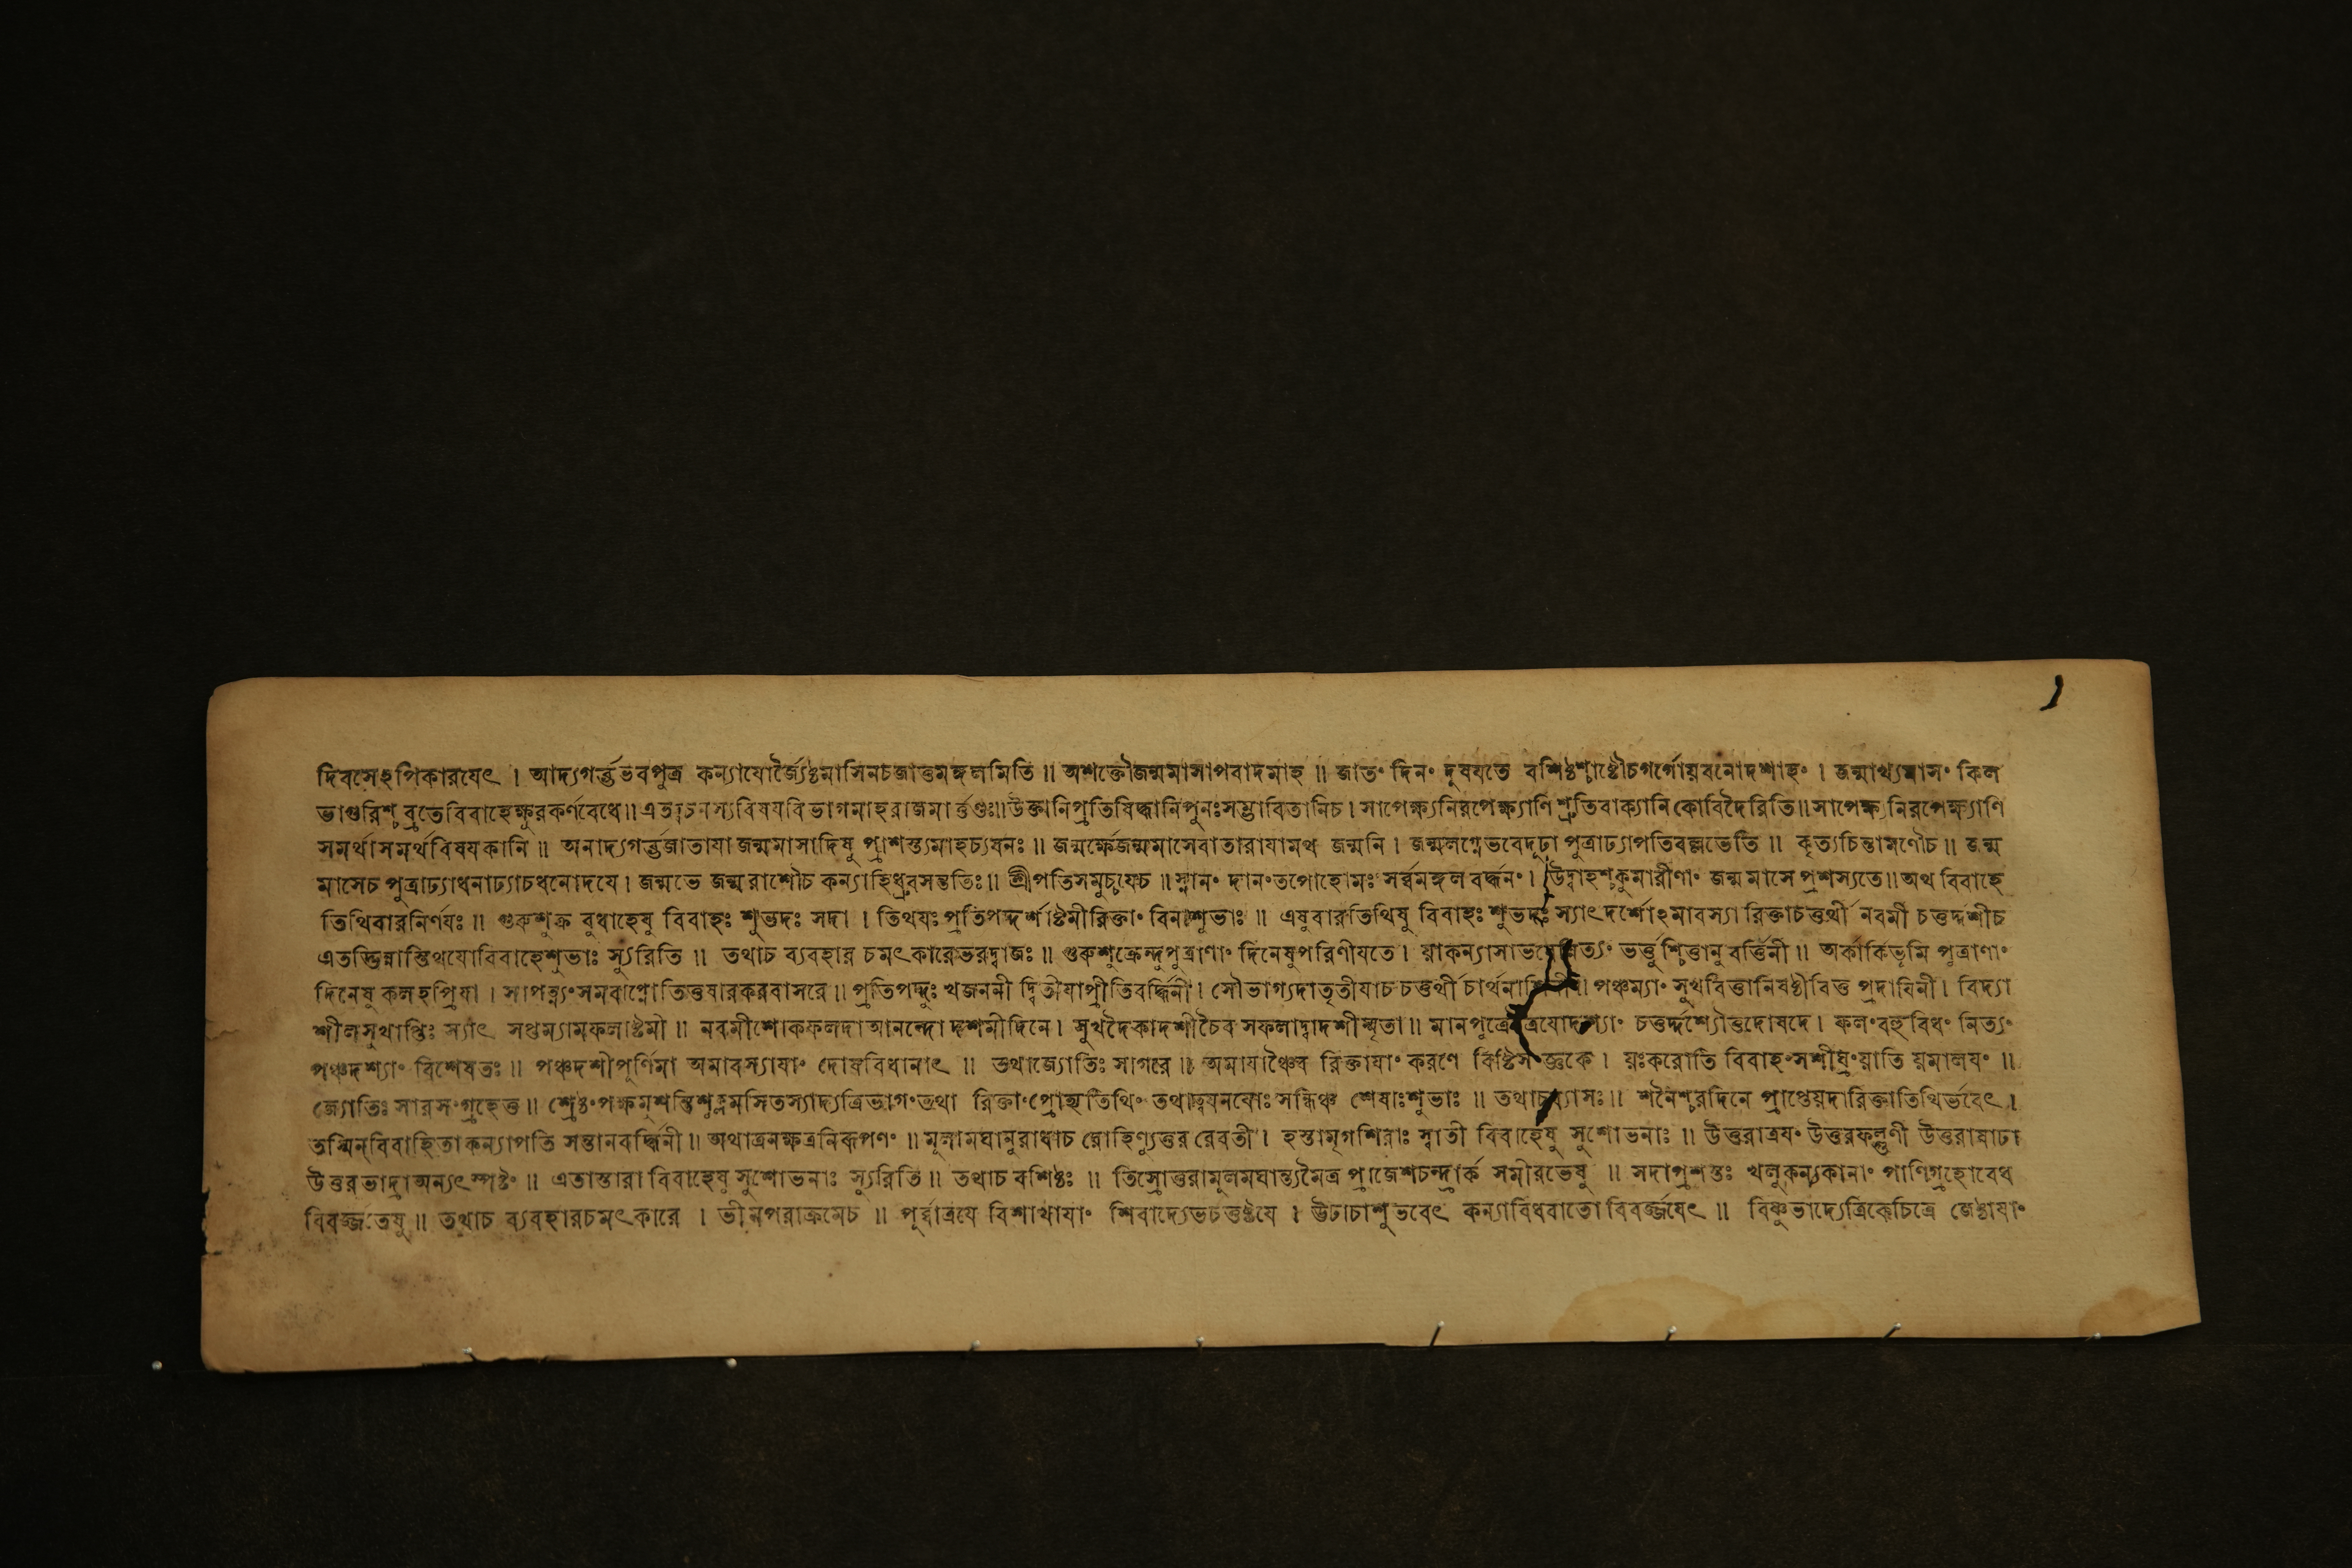 দিবসেঽপিকারযেৎ । আদ্যগর্ত্তভবপুত্র কন্যাযোর্জ্যৈষ্ঠমাসিনচজাতুমঙ্গলমিতি ॥ অশক্তৌজন্মমাসাপবাদমাহ ॥ জাতং দিনং দুষযতে বশিষ্ঠশ্চাষ্টৌচগর্গোযবনোদশাহং । জন্মাখ্যমাসং কিল
ভাগুরিশ্চ ব্রুতেবিবাহেক্ষুরকর্ণবেধে॥ এতদ্বচনস্যবিষযবিভাগমাহরাজমার্ত্তণ্ডঃ॥উক্তানিপ্রতিষিদ্ধানিপুনঃসম্ভাবিতানিচ । সাপেক্ষ্যনিরপেক্ষ্যাণি শ্রুতিবাক্যানি কোবিদৈরিতি॥ সাপেক্ষ্যনিরপেক্ষ্যাণি
সমর্থাসমর্থবিষযকানি ॥ অনাদ্যগর্ত্তজাতাযা জন্মমাসাদিষু প্রাশস্ত্যমাহচ্যবনঃ ॥ জন্মর্ক্ষেজন্মমাসেবাতারাযামথ জন্মনি । জন্মলগ্নেভবেদূঢা পুত্রাঢ্যাপতিবল্লভেতি ॥ কৃত্যচিন্তামণৌচ ॥ জন্ম
মাসেচ পুত্রাঢ্যাধনাঢ্যাচধনোদযে । জন্মভে জন্মরাশৌচ কন্যাহিধ্রুবসন্ততিঃ ॥ শ্রীপতিসমুচ্চযেচ ॥ স্নানং দানংতপোহোমঃ সর্ব্বমঙ্গল বর্দ্ধনং । উদ্বাহশ্চকুমারীণাং জন্মমাসে প্রশস্যতে॥ অথ বিবাহে
তিথিবারনির্ণযঃ ॥ গুরুশুক্র বুধাহেষু বিবাহঃ শুভদঃ সদা । তিথযঃ প্রতিপদ্দর্শাষ্টমীরিক্তাং বিনাশুভাঃ ॥ এষুবারতিথিষু বিবাহঃ শুভদঃ স্যাৎদর্শোঽমাবস্যা রিক্তাচতুর্থী নবমী চতুর্দ্দশীচ
এতদ্ভিন্নাস্তিথযোবিবাহেশুভাঃ স্যুরিতি ॥ তথাচ ব্যবহার চমৎকারেভরদ্বাজঃ ॥ গুরুশুক্রেন্দুপুত্রাণাং দিনেষুপরিণীযতে । যাকন্যাসাভবে ত্যং ভর্ত্তুশ্চিত্তানু বর্ত্তিনী ॥ অর্কার্কিভূমি পুত্রাণাং
দিনেষু কলহপ্রিযা । সাপত্ন্যংসমবাপ্নোতিতুষারকরবাসরে ॥ প্রতিপদ্দুঃ খজননী দ্বিতীযাপ্রীতিবর্দ্ধিনী । সৌভাগ্যদাতৃতীযাচ চতুর্থী চার্থনাশিনী। পঞ্চম্যাং সুখবিত্তানিষষ্ঠীবিত্ত প্রদাযিনী । বিদ্যা
শীলসুখাপ্তিঃ স্যাৎ সপ্তম্যামফলাষ্টমী ॥ নবমীশোকফলদা আনন্দো দশমীদিনে । সুখদৈকাদশীচৈব সফলাদ্বাদশীস্মৃতা ॥ মানপুত্রে ত্রযোদশ্যাং চতুর্দ্দশ্যৌতুদোষদে । ফলংবহু বিধং নিত্যং
পঞ্চদশ্যাং বিশেষতঃ ॥ পঞ্চদশীপূর্ণিমা অমাবস্যাযাং দোষবিধানাৎ ॥ তথাজ্যোতিঃ সাগরে ॥ অমাযাঞ্চৈব রিক্তাযাং করণে বিষ্টিসংজ্ঞকে । যঃকরোতি বিবাহংসশীঘ্রংযাতি যমালযং ॥
জ্যোতিঃ সারসংগ্রহেতু ॥ শ্রেষ্ঠংপক্ষমুশন্তিশুক্লমসিতস্যাদ্যত্রিভাগংতথা রিক্তাংপ্রোহ্যতিথিং তথা যনযোঃ সন্ধিঞ্চ শেষাঃশুভাঃ ॥ তথাচব্যাসঃ ॥ শনৈশ্চরদিনে প্রাপ্তেযদারিক্তাতিথির্ভবেৎ ।
তস্মিন্বিবাহিতা কন্যাপতি সন্তানবর্দ্ধিনী ॥ অথাত্রনক্ষত্রনিরূপণং ॥ মূলামঘানুরাধাচ রোহিণ্যুত্তর রেবতী । হস্তামৃগশিরাঃ স্বাতী বিবাহেষু সুশোভনাঃ ॥ উত্তরাত্রযং উত্তরফল্গুণী উত্তরাষাঢা
উত্তরভাদ্রা অন্যৎস্পষ্টং ॥ এতাস্তারা বিবাহেষু সুশোভনাঃ স্যুরিতি ॥ তথাচ বশিষ্ঠঃ ॥ তিস্রোত্তরামূলমঘান্ত্যমৈত্র প্রাজেশচন্দ্রার্ক সমীরভেষু ॥ সদাপ্রশস্তঃ খলুকন্যকানাং পাণিগ্রহোবেধ
বিবর্জ্জতেষু ॥ তথাচ ব্যবহারচমৎকারে । ভীমপরাক্রমেচ ॥ পূর্ব্বাত্রযে বিশাখাযাং শিবাদ্যেভচতুষ্টযে । ঊঢাচাশুভবেৎ কন্যাবিধবাতো বিবর্জ্জযেৎ ॥ বিষ্ণুভাদ্যেত্রিকেচিত্রে জেষ্ঠাযাং